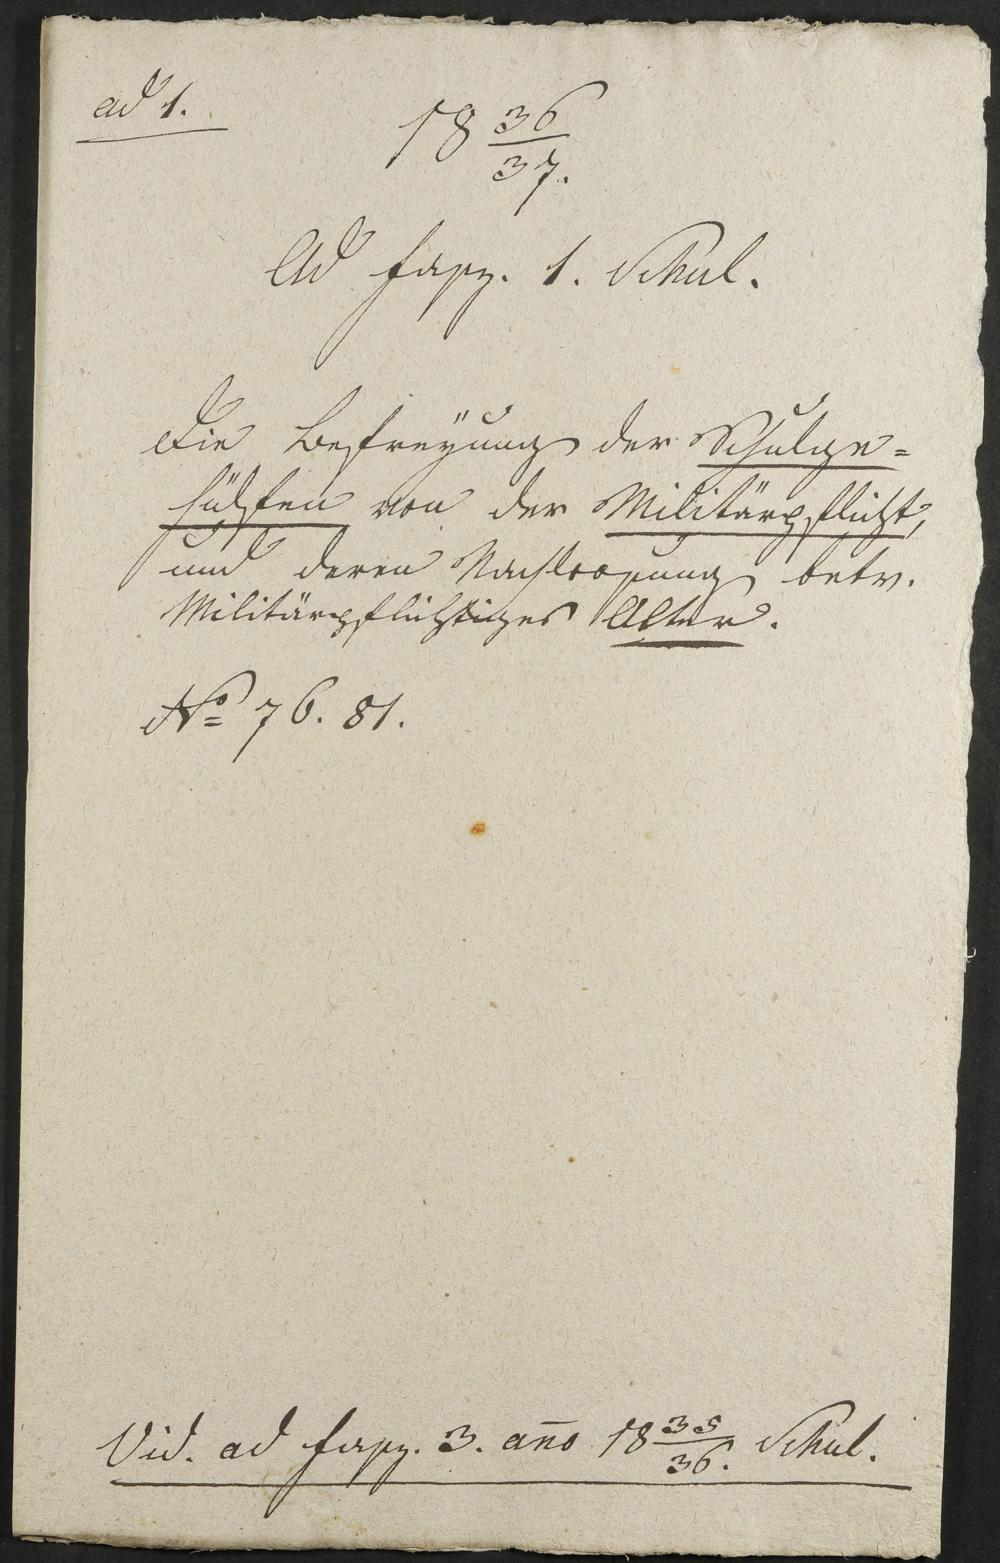 ad 1.
18 36/37.
Ad fasz. 1. Schul.
Die Befreyung der Schulge=
hülfen von der Militärpflicht,
und deren betr.
Militärpflichtiges Alter.
No 76. 81.
Vid. ad fasz. 3. año 18 35/36. Schul.